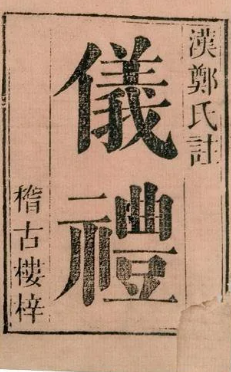 漢鄭氏註
儀禮
稽古樓梓